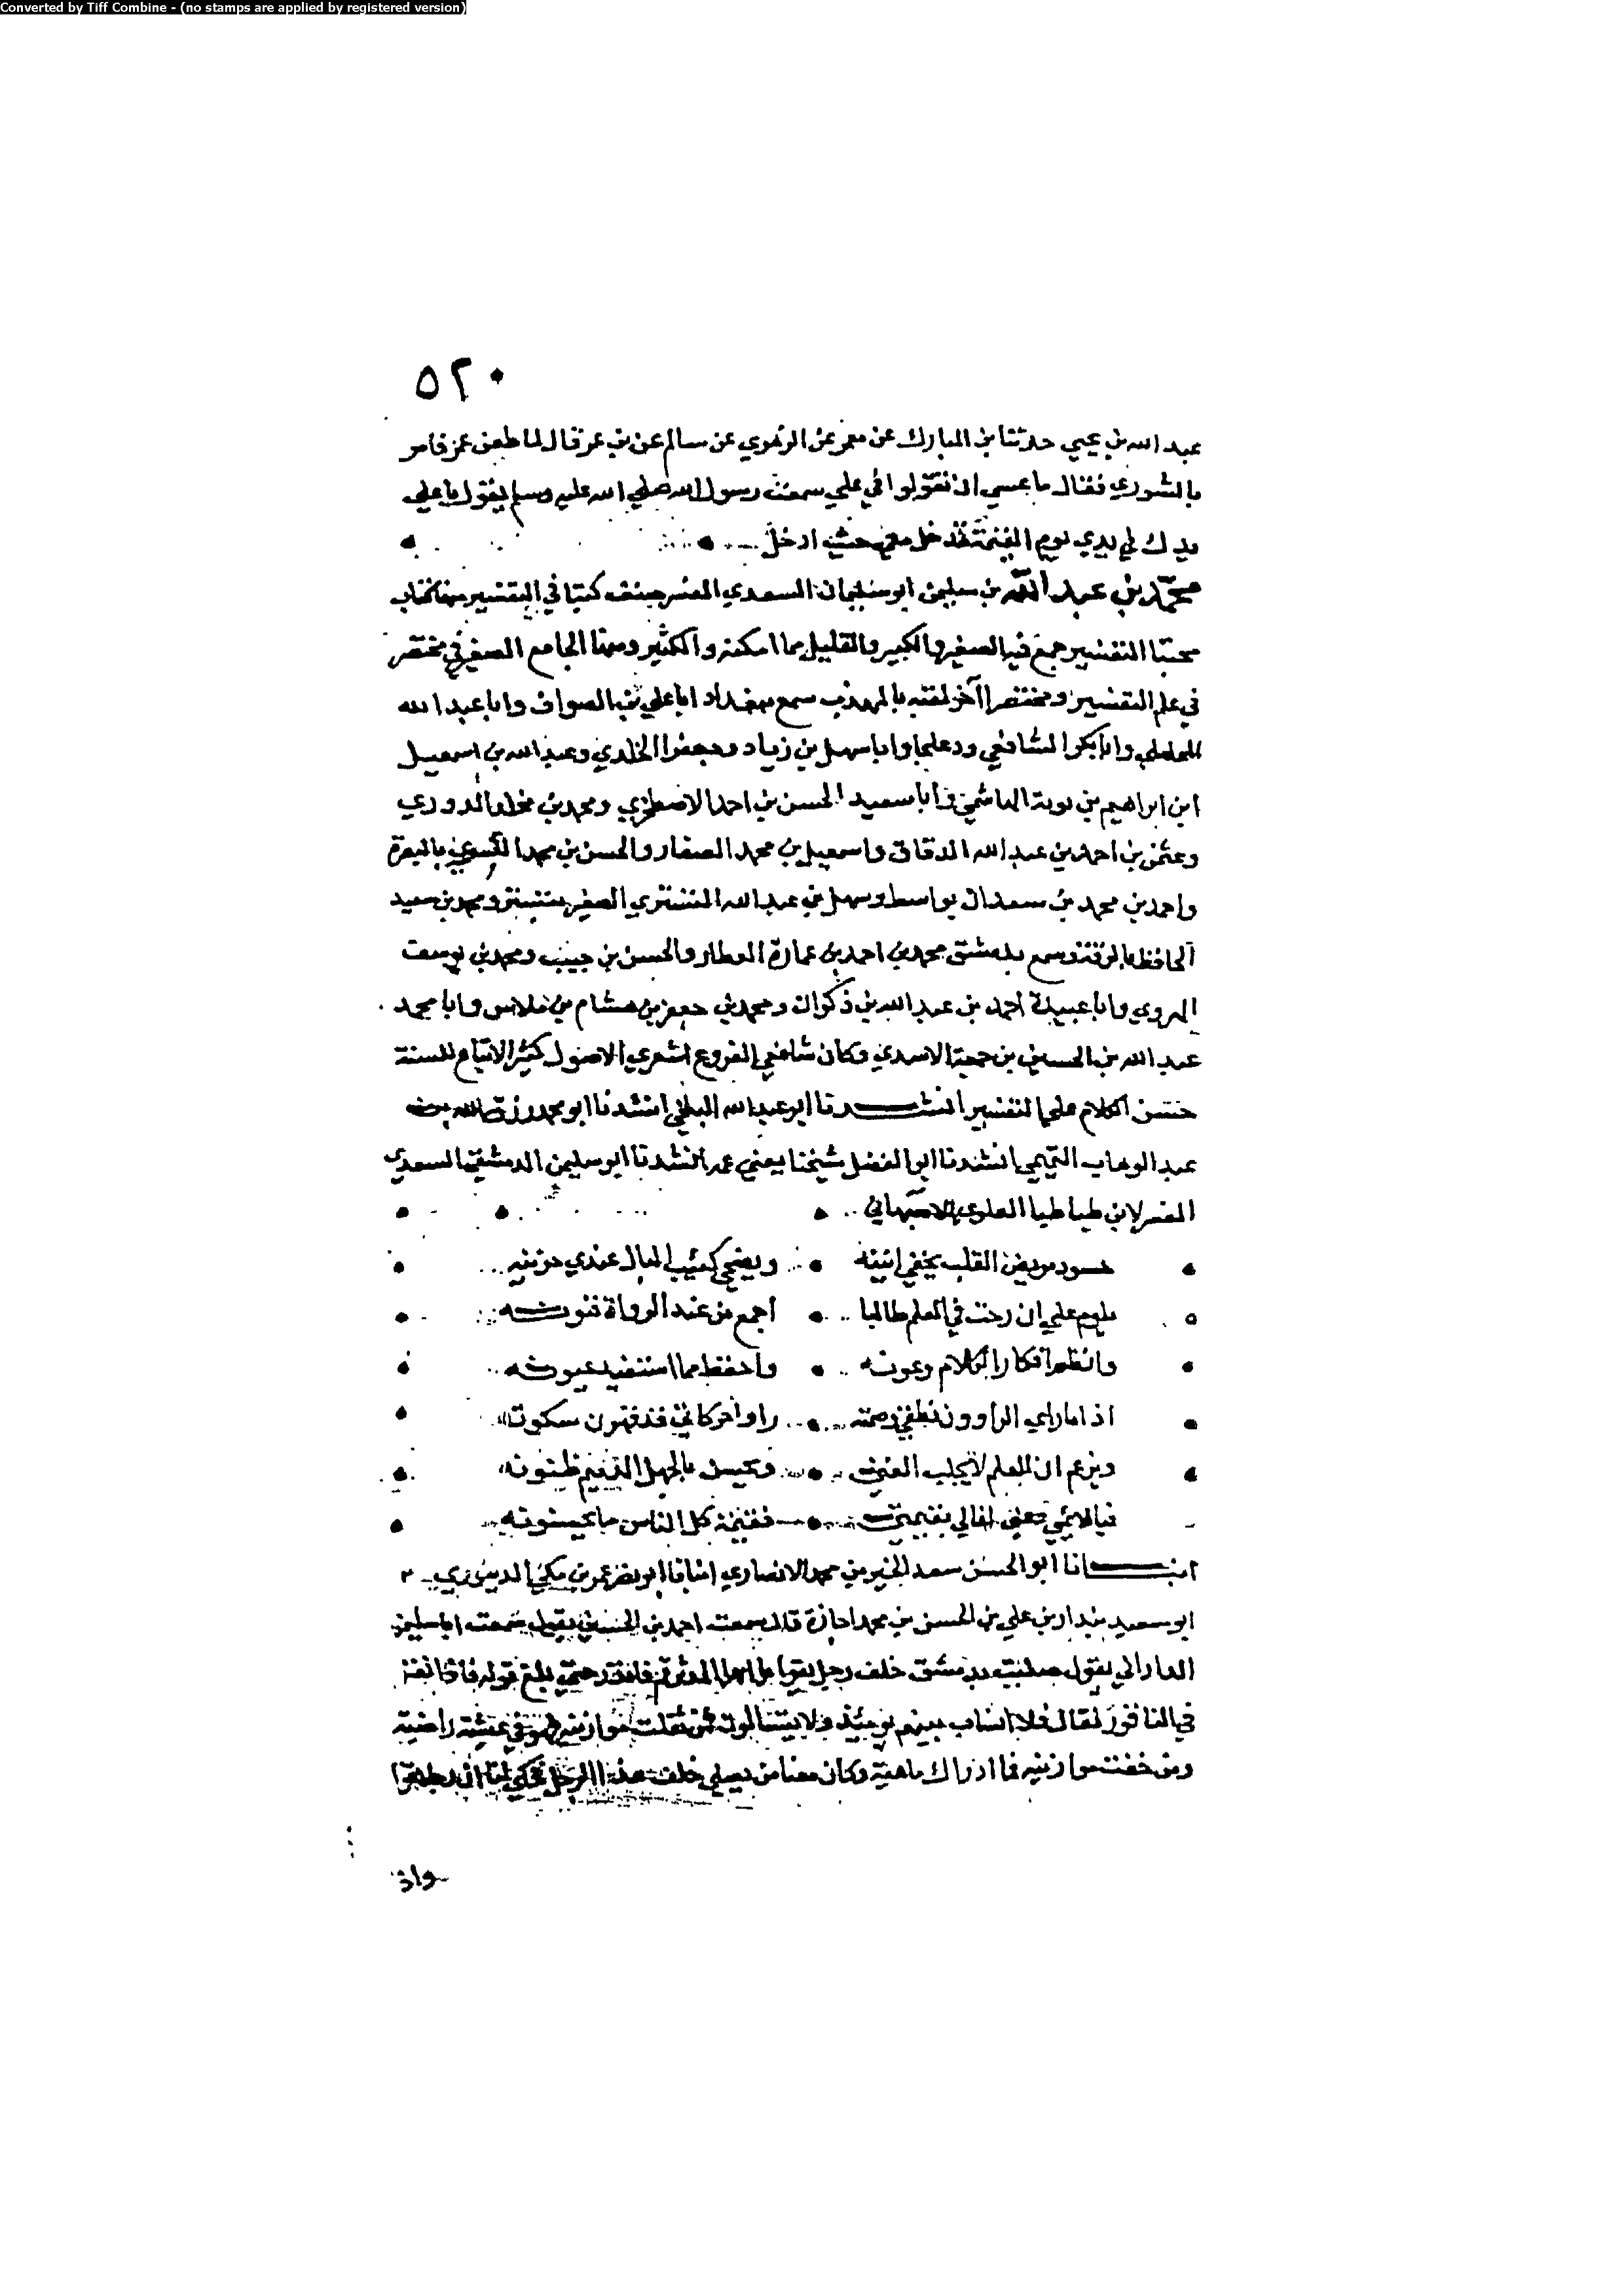 Converted by Tiff Combine - (no stamps are applied by registered version)
٥٢٠
عبد الله بن يحيي حدثنا بن المبارك عن معمر عن الزهري عن سالم عن بن عمر قال لما طعن عمر فامر
بالشوري فقال ما عسي ان تقولوا في علي سمعت رسول الله صلي الله عليه وسلم يقول يا علي
يدك في يدي يوم القيمة تدخل معي حيث ادخل
محمد بن عبد الله بن سليمن ابو سليمان السعدي المفسر صنف كتبا في التفسير منها كتاب
مجتبا التفسير جمع فيه الصغير والكبير والقليل مما امكنه والكثير ومنها الجامع الصغير في مختصر
في علم التفسير ومختصرا آخر لقبه بالمهذب سمع ببغداد ابا علي بن الصواف وابا عبد الله
المحاملي وابا بكر الشافعي ودعلجا وابا سهل بن زياد وجعفر الخلدي وعبد الله بن اسمعيل
ابن ابراهيم بن بوية الهاشمي وأبا سعيد الحسن بن احمد الاصطخري ومحمد بن مخلد الدوري
وعثمن بن احمد بن عبد الله الدقاق واسمعيل بن محمد الصفار والحسن بن محمد بالبصرة
واحمد بن محمد بن سعدان بواسط وسهل بن عبد الله التستري الصغير بتستر ومحمد بن سعيد
الحافظ بالرقة وسمع بدمشق محمد بن احمد بن عمارة العطار والحسن بن حبيب ومحمد بن يوسف
الهروي وابا عبيدة أحمد بن عبد الله بن ذكوان ومحمد بن جعفر بن هشام بن ملاس وابا محمد
عبد الله بن الحسين بن جمعة الاسدي وكان شافعي الفروع اشعري الاصول كثير الاتباع للسنة
حسن الكلام علي التفسير انشدنا ابو عبد الله البلخي انشدنا ابو محمد رزق الله بن
عبد الوهاب التميمي انشدنا ابو الفضل شيخنا يعني عمه انشدنا ابو سليمن الدمشقي السعدي
المفسر لابن طباطبا العلوي الاصبهاني
حسود مريض القلب يخفي انينه ويضحي كئيب البال عندي حزينه
يلوم علي ان رحت في العلم طالبا اجمع من عند الرواة فنونه
وانظم افكار الكلام وعونه واحفظ مما استفيد عيونه
اذا ما راي الراوون نطقي وصمته راوا حركاتي قد قهرن سكوته
ويزعم ان العلم لا يجلب الغني ويحسن بالجهل الذميم ظنونه
فيا لائمي دعني اغالي بقيمتي فقيمة كل الناس ما يحسنونه
انبانا ابو الحسن سعد الخير بن محمد الانصاري انبانا ابو نصر عمر بن مكي الدينوري
ابو سعيد بندار بن علي بن الحسن بن محمد اجازة قال سمعت احمد بن الحسين يقول سمعت ابا سليمن
الداراني يقول صليت بدمشق خلف رجل يقرا يا ايها المدثر قم فانذر حتي بلغ قوله فاذا نقر
في الناقور فقال فلا انساب بينهم يومئذ ولا يتسالون فمن ثقلت موازينه فهو في عيشة راضية
ومن خفت موازينه فما ادراك ماهية وكان معنا من يصلي خلف هذا الرجل
واذ